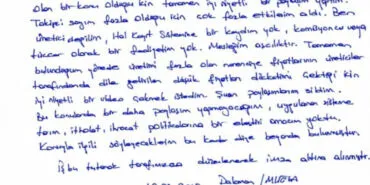 olan bir konu olduğu için tamamen iyi niyetli bir paylaşım yaptım.
Takipçi sayım fazla olduğu için çok fazla etkileşim aldı. Ben
üretici değilim, Hal Kayıt Sistemine bir kaydım yok, komisyoncu veya
tüccar olarak bir faaliyetim yok. Mesleğim aşçılıktır. Tamamen
bulunduğum yörede üretimi fazla olan narenciye fiyatlarının üreticiler
tarafından da dile getirilen düşük fiyatları dikkatimi çektiği için
iyi niyetli bir video çekmek istedim. Şuan paylaşımlarımı sildim.
Bu konularda bir daha paylaşım yapmayacağımı, uygulanan
tarım, ithalat, ihracat politikalarına bir eleştiri amacım yoktu.
Konuyla ilgili söyleyeceklerim bu kadar diye beyanda bulunmuştur.
İş bu tutanak tarafımızca düzenlenerek imza altına alınmıştır.
Dalaman / MUĞLA